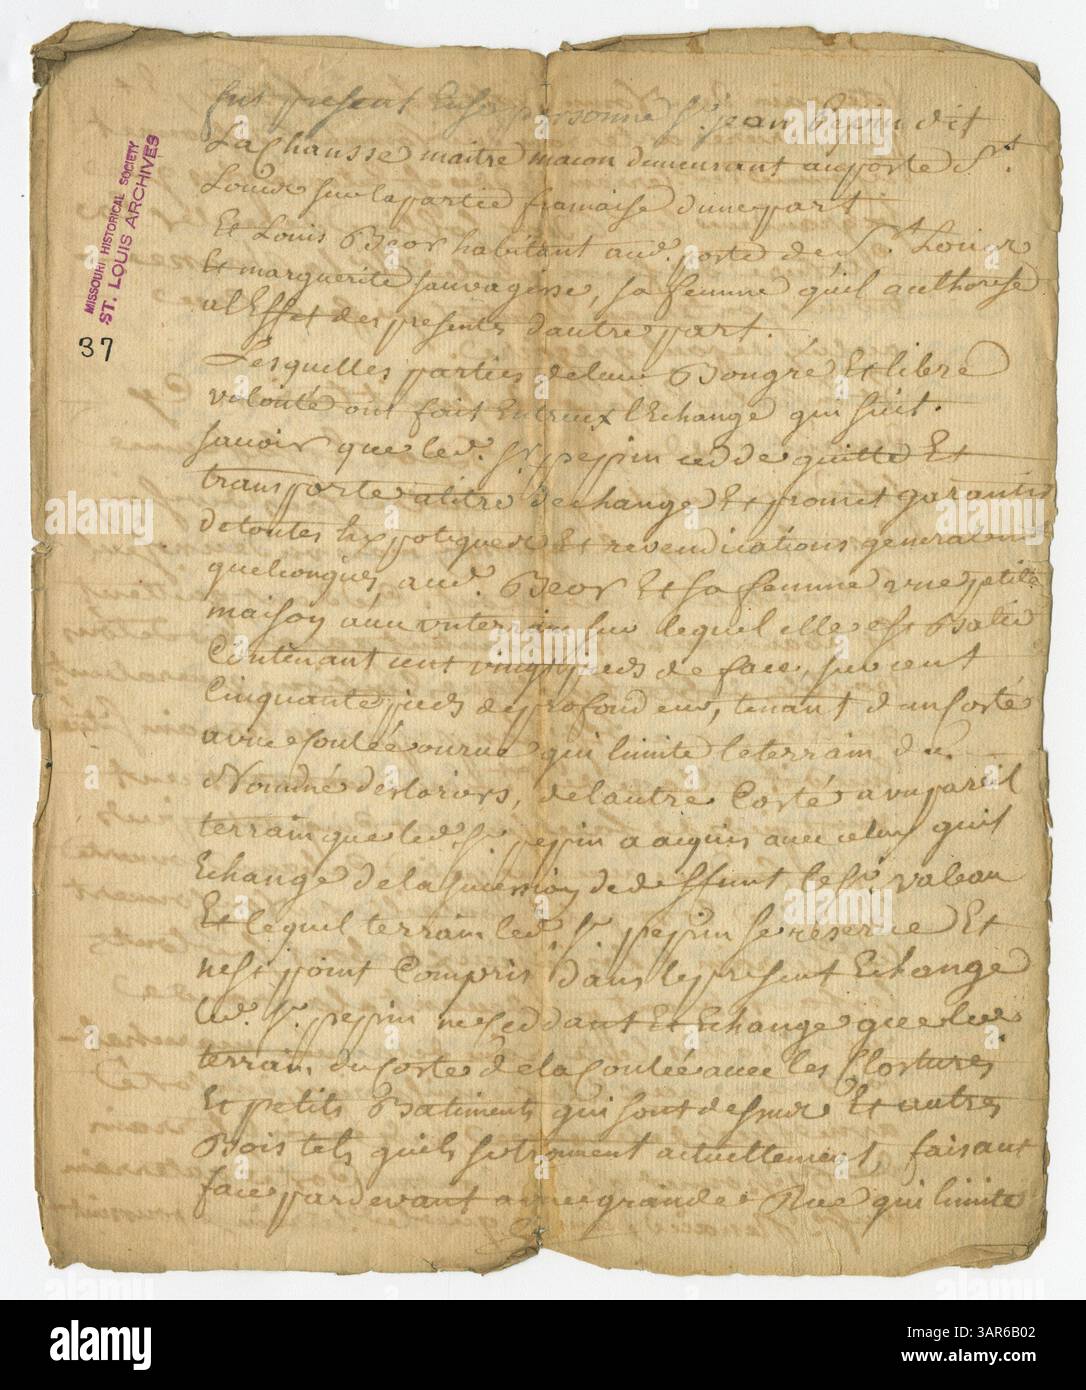 fut present En sa personne Sr. jean Pepin dit
La Chausse maitre macon demeurant au poste St.
Louis sur la partie francaise d'une part
Et Louis Beor habitant aud. poste de St. Louis
Et marguerite sauvagesse, sa femme quil authorise
a l'Effet des presentes d'autre part.
Lesquelles parties de leur Bongré Et libre
volonté ont fait Entreux l'Echange qui suit.
savoir que led. Sr. peppin cedde quitte Et
transporte a titre d'echange Et promet garantir
de toutes hypotiques Et revendications generalem
quelconques, aud. Beor Et sa femme une petite
maison avec un terrain sur lequel elle est Batie
Contenant cent vingt pieds de face, sur cent
Cinquante pieds de profondeur, tenant d'un Costé
a une coulée qui limite le terrain du
Nommé de l'autre Costé a un pareil
terrain que led. Sr. peppin a aquis avec celuy quil
Echange de la succession de deffunt le Sr. valeau
Et lequel terrain led. Sr. peppin se reserve Et
n'est point Compris dans le present Echange
led. Sr. peppin ne ceddant Et Echange que led.
terrain du Costé de la Coulée avec les Clostures
Et petits Batiments qui sont dessus Et autres
Bois tels quils se trouvent actuellement, faisant
face par devant a une grande Rue qui limite
MISSOURI HISTORICAL SOCIETY
ST. LOUIS ARCHIVES
37
alamy
Image ID: 3AR6B02
www.alamy.com